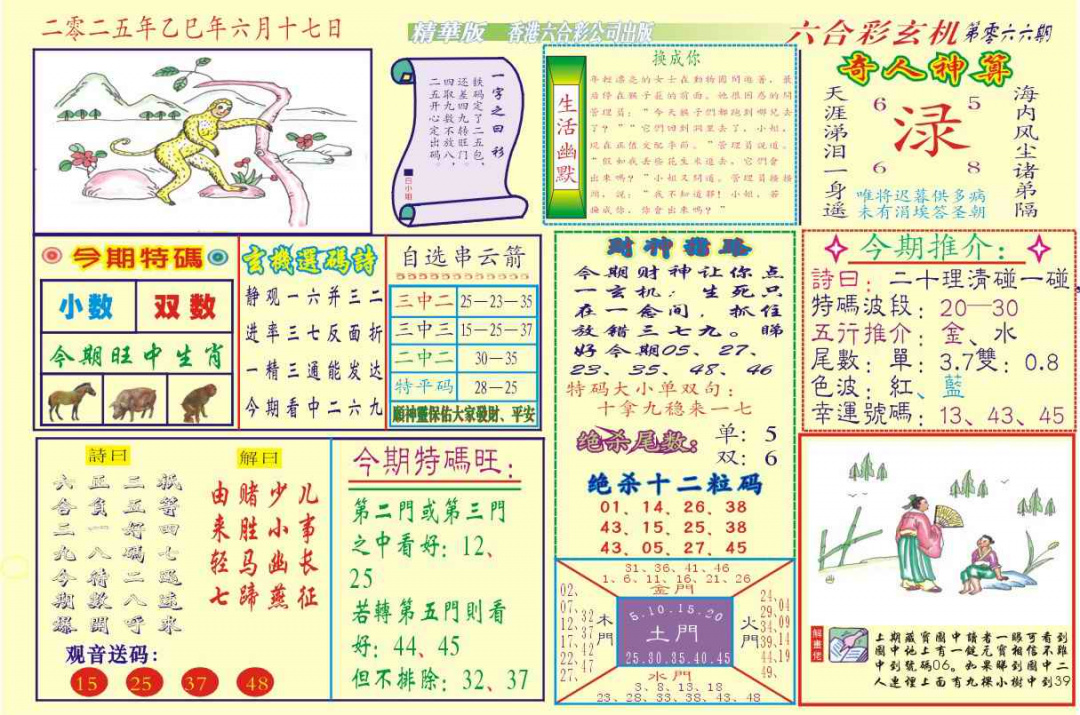 二零二五年乙巳年六月十七日
精華版 香港六合彩公司出版
六合彩玄机 第零六六期
一字之曰衫
鉄码定了二五包，
还差四九转旺门。
四取九数不放八，
二五开心定出码。
白小姐
换成你
生活幽默
年輕漂亮的女士在動物園閒逛著，最
后停在猴子荘的前面。她很困惑的問
管理員：“今天猴子們都跑到哪兒去
了？”“它們回到洞里去了，小姐。
現在正值交配季節。”管理員說道。
“假如我丢些花生米進去，它們會
出來嗎？”小姐又問道。管理員搔搔
頭，說：“我不知道耶！小姐，若
換成你，你會出來嗎？”
奇人神算
天涯涕泪一身遥
6 5
渌
6 8
海内风尘诸弟隔
唯将迟暮供多病
未有涓埃答圣朝
今期特碼
小数 双数
今期旺中生肖
玄機選碼詩
静观一六并三二
进率三七反面折
一精三通能发达
今期看中二六九
自选串云箭
三中二 25—23—35
三中三 15—25—37
二中二 30—35
特平码 28—25
願神靈保佑大家發財、平安
财神指路
今期财神让你点
一玄机：生死只
在一念间，抓住
放错三七九。睇
好今期05、27、
23、35、48、46
特码大小单双句：
十拿九稳来一七
绝杀尾数：
单：5
双：6
绝杀十二粒码
01、14、26、38
43、15、25、38
43、05、27、45
今期推介：
詩曰：二十理清碰一碰，
特碼波段：20—30
五行推介：金、水
尾數：單：3.7雙：0.8
色波：紅、藍
幸運號碼：13、43、45
詩曰
六合二九今期爆
正負一八待數開
二五好碼二八呼
祇等四七迅速來
解曰
由赌少儿
来胜小事
轻马幽长
七蹄燕征
观音送码：
15 25 37 48
今期特碼旺：
第二門或第三門
之中看好：12、
25
若轉第五門則看
好：44、45
但不排除：32、37
31、36、41、46
1、6、11、16、21、26
金門
02、07、12、17、22、27、
32、37、42、47
木門
5.10.15.20
土門
25.30.35.40.45
火門
24、29、34、39、44、49、
04、09、14、19
水門
3、8、13、18
23、28、33、38、43、48
解畫佬
上期藏寶圖中讀者一眼可看到
圖中地上有一錠元寶相信不難
中到號碼06。如果睇到圖中二
人連埋上面有九棵小樹中到39